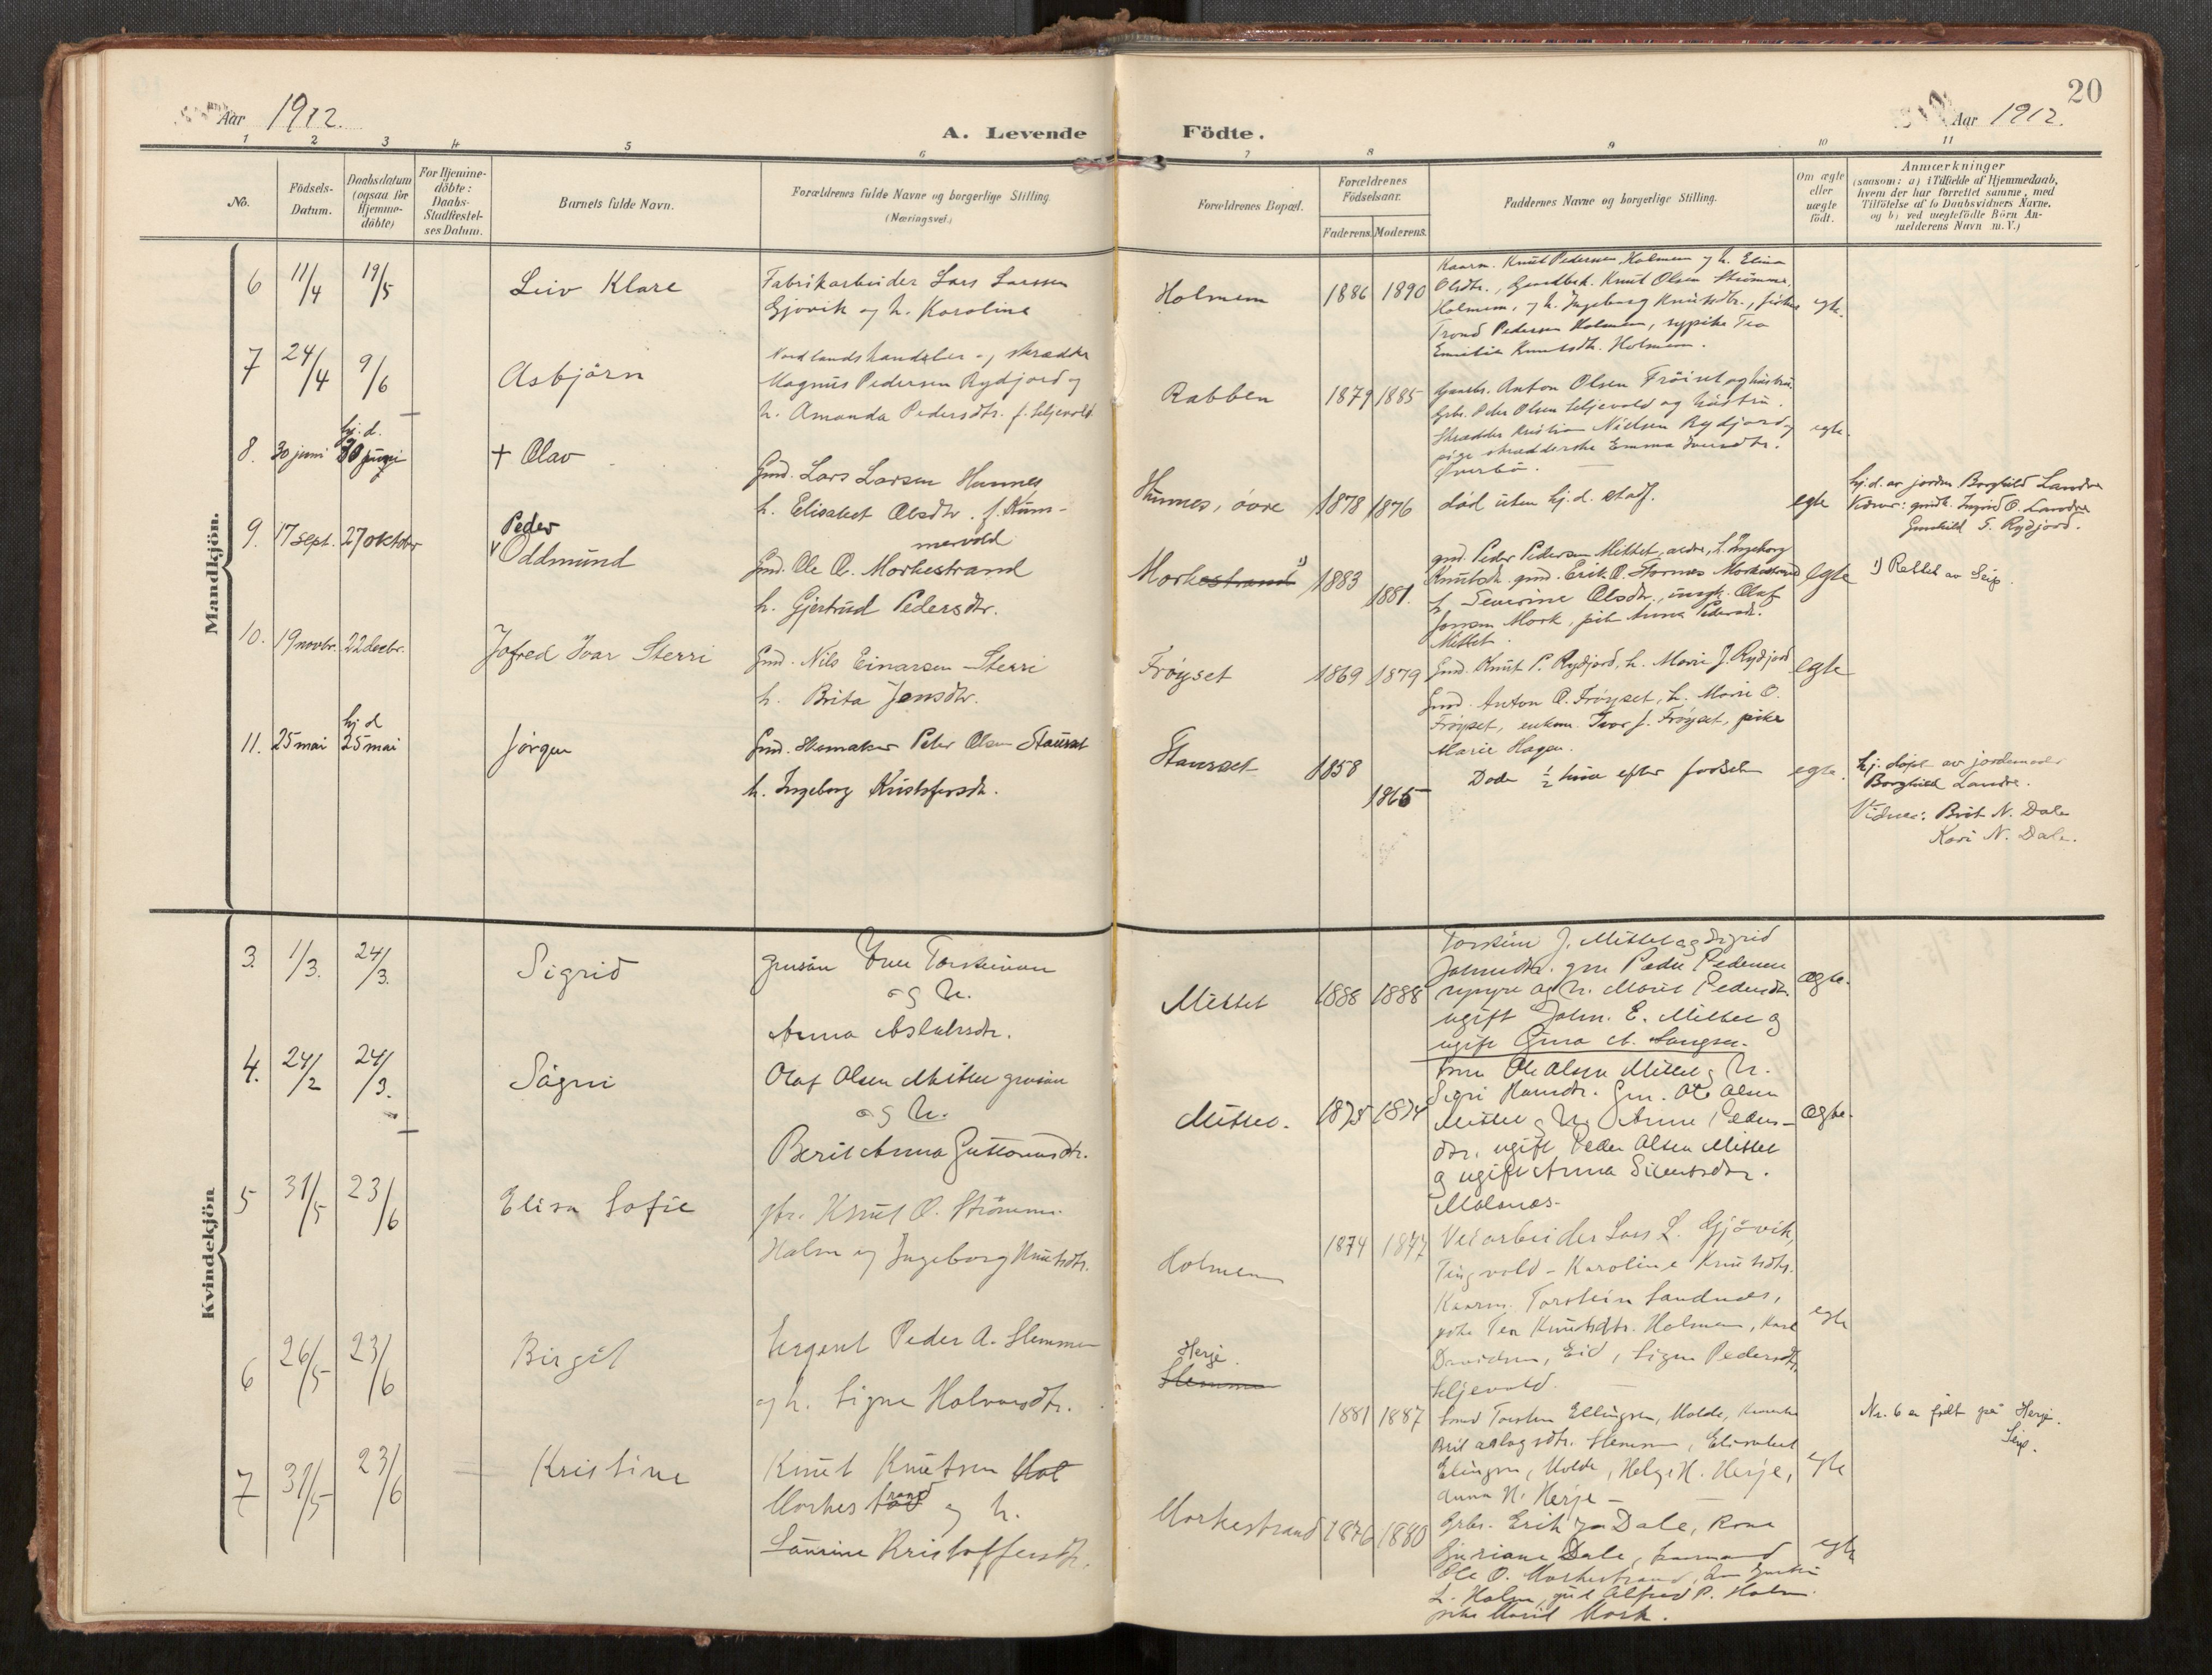 20
Aar 1912.
A. Levende Födte.
Aar 1912.
1 2 3 4 5 6 7 8 9 10 11
No.
Födsels-
Datum.
Daabsdatum
(ogsaa for
Hjemme-
döbte)
For Hjemme-
döbte:
Daabs-
Stadfæstel-
ses Datum.
Barnets fulde Navn.
Forældrenes fulde Navne og borgerlige Stilling.
(Næringsvei.)
Forældrenes Bopæl.
Forældrenes
Födselsaar.
Faderens. Moderens.
Faddernes Navne og borgerlige Stilling.
Om ægte
eller
uægte
födt.
Anmærkninger
(saasom: a) i Tilfælde af Hjemmedaab,
hvem der har forrettet samme, med
Tilföielse af to Daabsvidners Navne,
og b) ved uægtefödte Börn An-
melderens Navn m. V.)
Mandkjön.
6 11/4 19/5 Leiv Klare
Fabrikarbeider Lars Larssen
Gjøvik og h. Karoline
Holmem 1886 1890
Kaarm. Knut Pedersen Holmem og h. Elina
Olsdtr., Gardbrk. Knut Olsen Strömme,
Holmem, og h. Ingeborg Knutsdtr., fisker
Trond Pedersen Holmem, sypike Tea
Emilie Knutsdtr. Holmem.
egte.
7 24/4 9/6 Asbjörn
Nordlandshandeler og skrædder
Magnus Pedersen Rydjord og
h. Amanda Pedersdtr. f. Seljevold
Rabben 1879 1885
Gaarbr. Anton Olsen Fröiset og hustru.
Grbr. Peder Olsen Seljevold og hustru.
Skrædder Kristian Nielsen Rydjord og
pige skrædderske Emma Iversdtr.
Øverbö.
egte.
8. 30 juni hj. d. 30 juni + Olav
Gmd. Lars Larsen Hunnes
h. Elisabet Olsdtr. f. Kum-
mervold
Hunnes, övre 1878 1876
död uten hj. d. staf.
egte
hj. d. av jordm. Borghild Landre
Vidner: gmdk. Ingrid O. Landre
Gunhild T. Rydjord.
9. 17 sept. 27 oktober
Peder
Oddmund
Gmd. Ole O. Morkestrand
h. Gjertrud Pedersdtr.
Morkestrand 1) 1883 1881.
gmd. Peder Pedersen Mittet, ældre, h. Ingeborg
Knutsdr. gmd. Erik O. Hornes Morkestrand
h. Severine Olsdtr., ungk. Olaf
Jonsen Mork, pik Anna Pedersdt.
Mittet.
egte
1) Rettet av Seip.
10. 19 novbr. 22 decbr.
Jofred Ivar Sterri
Gmd. Nils Einarsen Sterri
h. Brita Jonsdtr.
Fröyset 1869 1879
Gmd. Knut P. Rydjord, h. Marie J. Rydjord
Gmd. Anton O. Fröyset, h. Marie O.
Fröyset, enkem. Ivar J. Fröyset, pike
Marie Hagen.
egte
11. 25 mai hj. d 25 mai Jörgen
Gmd. Skomaker Peter Olsen Staurset
h. Ingeborg Kristofersdtr.
Staurset 1858 1865
Döde 1/2 time efter födselen
egte.
hj. döpt av jordemoder
Borghild Landre.
Vidner: Brit N. Dale
Kari N. Dale.
Kvindekjön
3. 1/3. 24/3. Sigrid
og h.
Anna Aslaksdtr.
Mittet 1888 1888
Torstein J. Mittet og Sigrid
Johnsdtr. gm Peder Pedersen
og h. Marit Pedersdtr.
ugift John. E. Mittet og
ugift Gina A. Langset.
Ægte.
4. 24/2 24/3. Ságni
Olaf Olsen Mittet
og h.
Berit Anna Guttormsdtr.
Mittet. 1875 1874
Ole Olsen Mittet og h.
Sigri Hansdtr. Gm. Ole Olsen
Mittet og h. Anne Peders-
dtr. ugift Peder Olsen Mittet
og ugift Anna Sivertsdtr.
Malmas.
Ægte.
5 31/5 23/6 Elisa Sofie
gbr. Knut O. Strömme
Holm og Ingeborg Knutsdtr.
Holmem 1874 1877
Veiarbeider Lars L. Gjövik,
Tingvold - Karoline Knutsdtr.
Kaarm. Torstein Sandnes,
pike Tea Knutsdtr. Holmem, Karl
Davidsen, Eid, Signe Pedersdtr,
Seljevold.
egte
6 26/5 23/6 Birgit
Sergent Peder A. Slemmen
og h. Signe Halvorsdtr.
Herje.
Slemmen
1881 1887
Torsten Ellingsen, Molde,
Brit Aslagsdtr. Slemmen, Elisabet
Elingsen, Molde, Helge H. Herje,
Anna H. Herje -
egte
Nr. 6 er födt på Herje.
Seip.
7 31/5 23/6 Kristine
Knut Knutsen Hol
Morkestrand og h.
Laurine Kristoffersdtr.
Morkestrand 1876 1880
Grbr. Erik Dale, Kone
Guriane Dale,
Ole O. Morkestrand,
L. Holm, gut Alfred P. Holm
pike Marit Mork.
egte